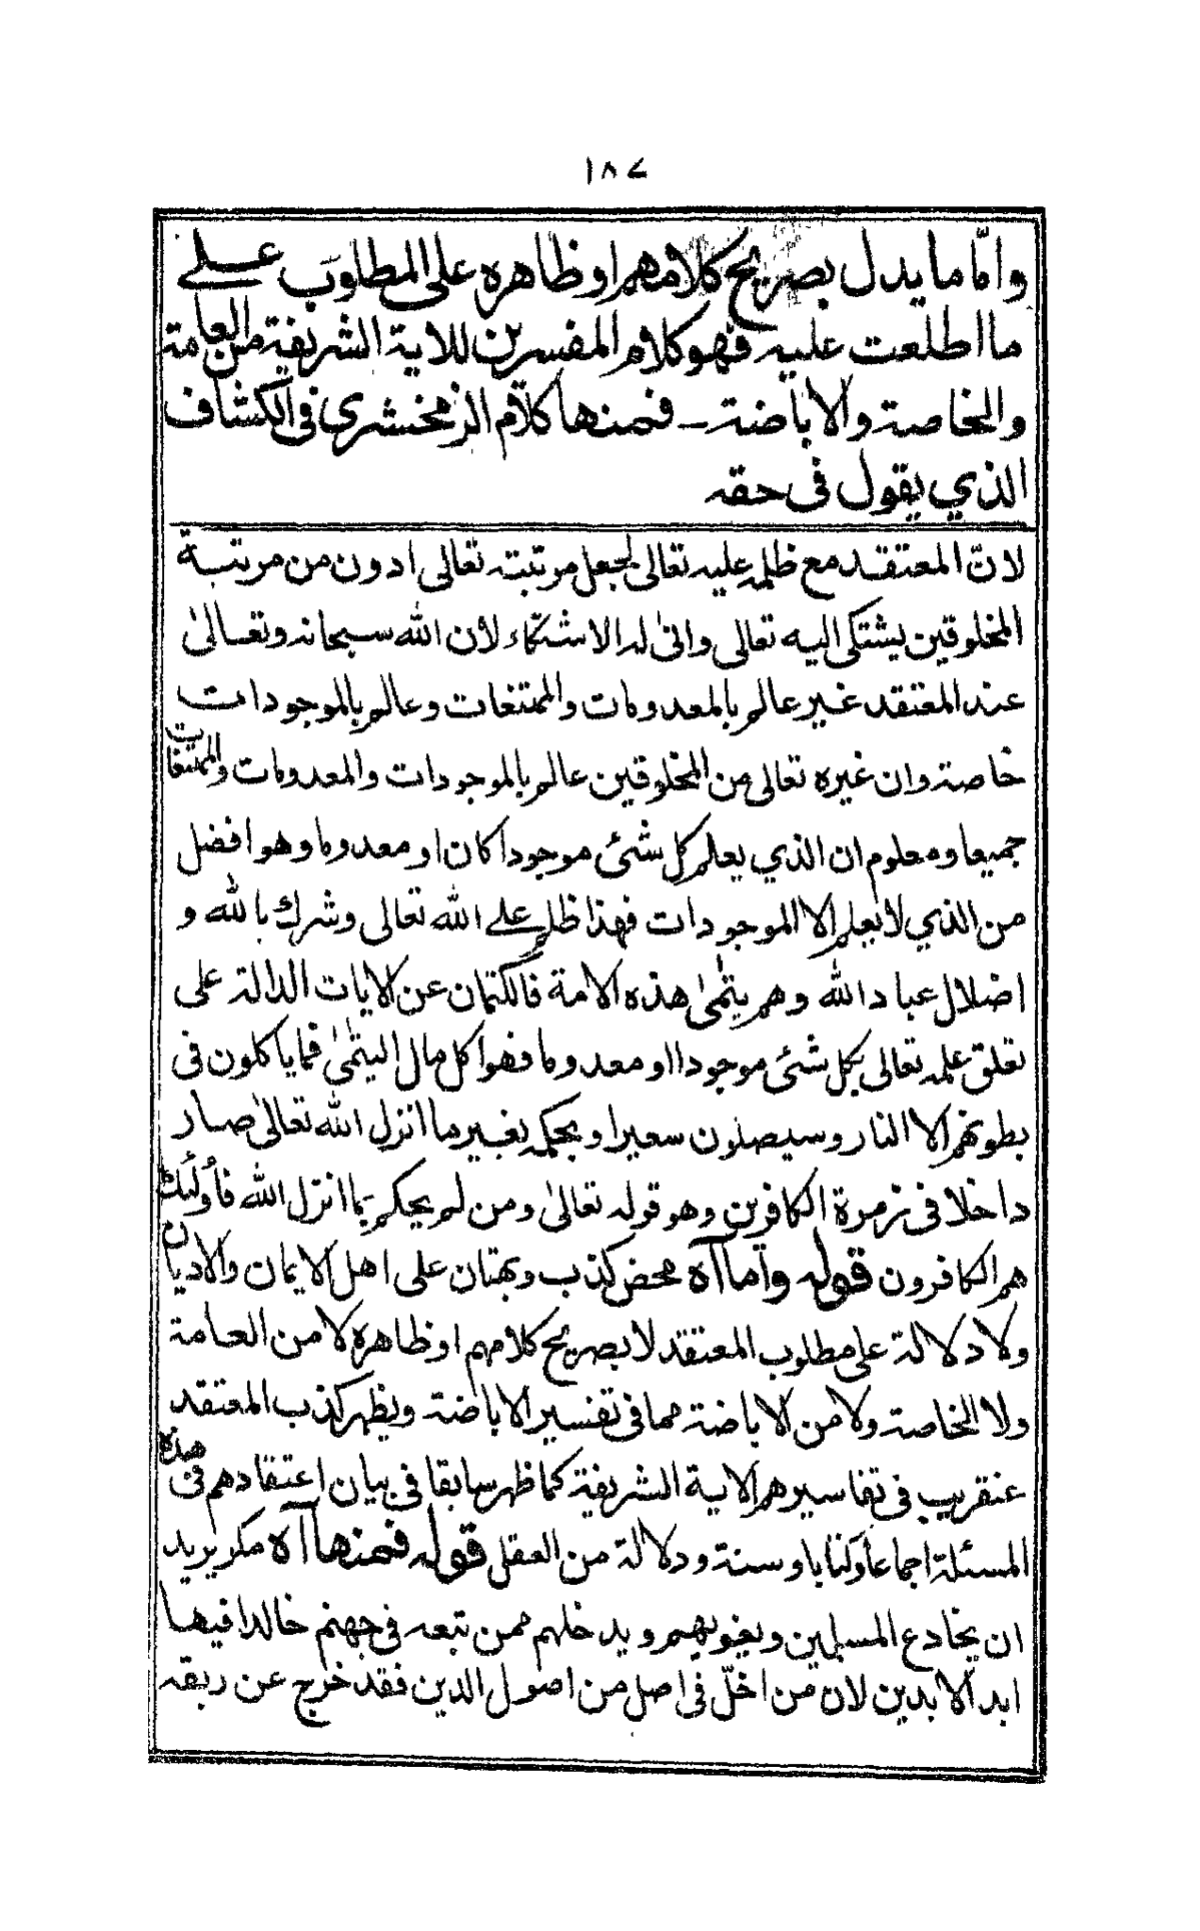 ١٨٧
وامّا ما يدل بصريح كلامهم او ظاهره على المطلوب على
ما اطلعت عليه فهو كلام المفسرين للاية الشريفة من العامة
والخاصة والاباضة ـ فمنها كلام الزمخشري في الكشاف
الذي يقول في حقه
لانّ المعتقد مع ظلمه عليه تعالى لجعل مرتبته تعالى ادون من مرتبة
المخلوقين يشتكى اليه تعالى وانى له الاشتكاء لأن الله سبحانه وتعالىٰ
عند المعتقد غير عالم بالمعدومات والممتنعات وعالم بالموجودات
خاصة وان غيره تعالى من المخلوقين عالم بالموجودات والمعدومات والممتنعات
جميعا ومعلوم ان الذي يعلم كل شئ موجودا كان او معدوما وهو افضل
من الذي لا يعلم الا الموجودات فهذا ظلم على الله تعالى وشرك بالله و
اضلال عباد الله وهم يتمىٰ هذه الامة فالكتمان عن الايات الدالة على
تعلق علمه تعالى بكل شئ موجودا او معدوما فهو اكل مال اليتمىٰ فما ياكلون في
بطونهم الا النار وسيصلون سعيرا وبحكمه بغير ما انزل الله تعالىٰ صار
داخلا في زمرة الكافرين وهو قوله تعالىٰ ومن لم يحكم بما انزل الله فأولئك
هم الكافرون قوله وآما آه محض كذب وبهتان على اهل الايمان والاديان
ولا دلالة على مطلوب المعتقد لا بصريح كلامهم او ظاهره لا من العامة
ولا الخاصة ولا من الاباضة مما في تفسير الاباضة ويظهر كذب المعتقد
عنقريب في تفاسيرهم الاية الشريفة كما ظهر سابقا في بيان اعتقادهم في هذه
المسئلة اجماعا وكتابا وسنة ودلالة من العقل قوله فمنها آه مكر يريد
ان يخادع المسلمين ويغويهم ويدخلهم ممن تبعه في جهنم خالدا فيها
ابد الابدين لان من اخلّ في اصل من اصول الدين فقد خرج عن ربقه